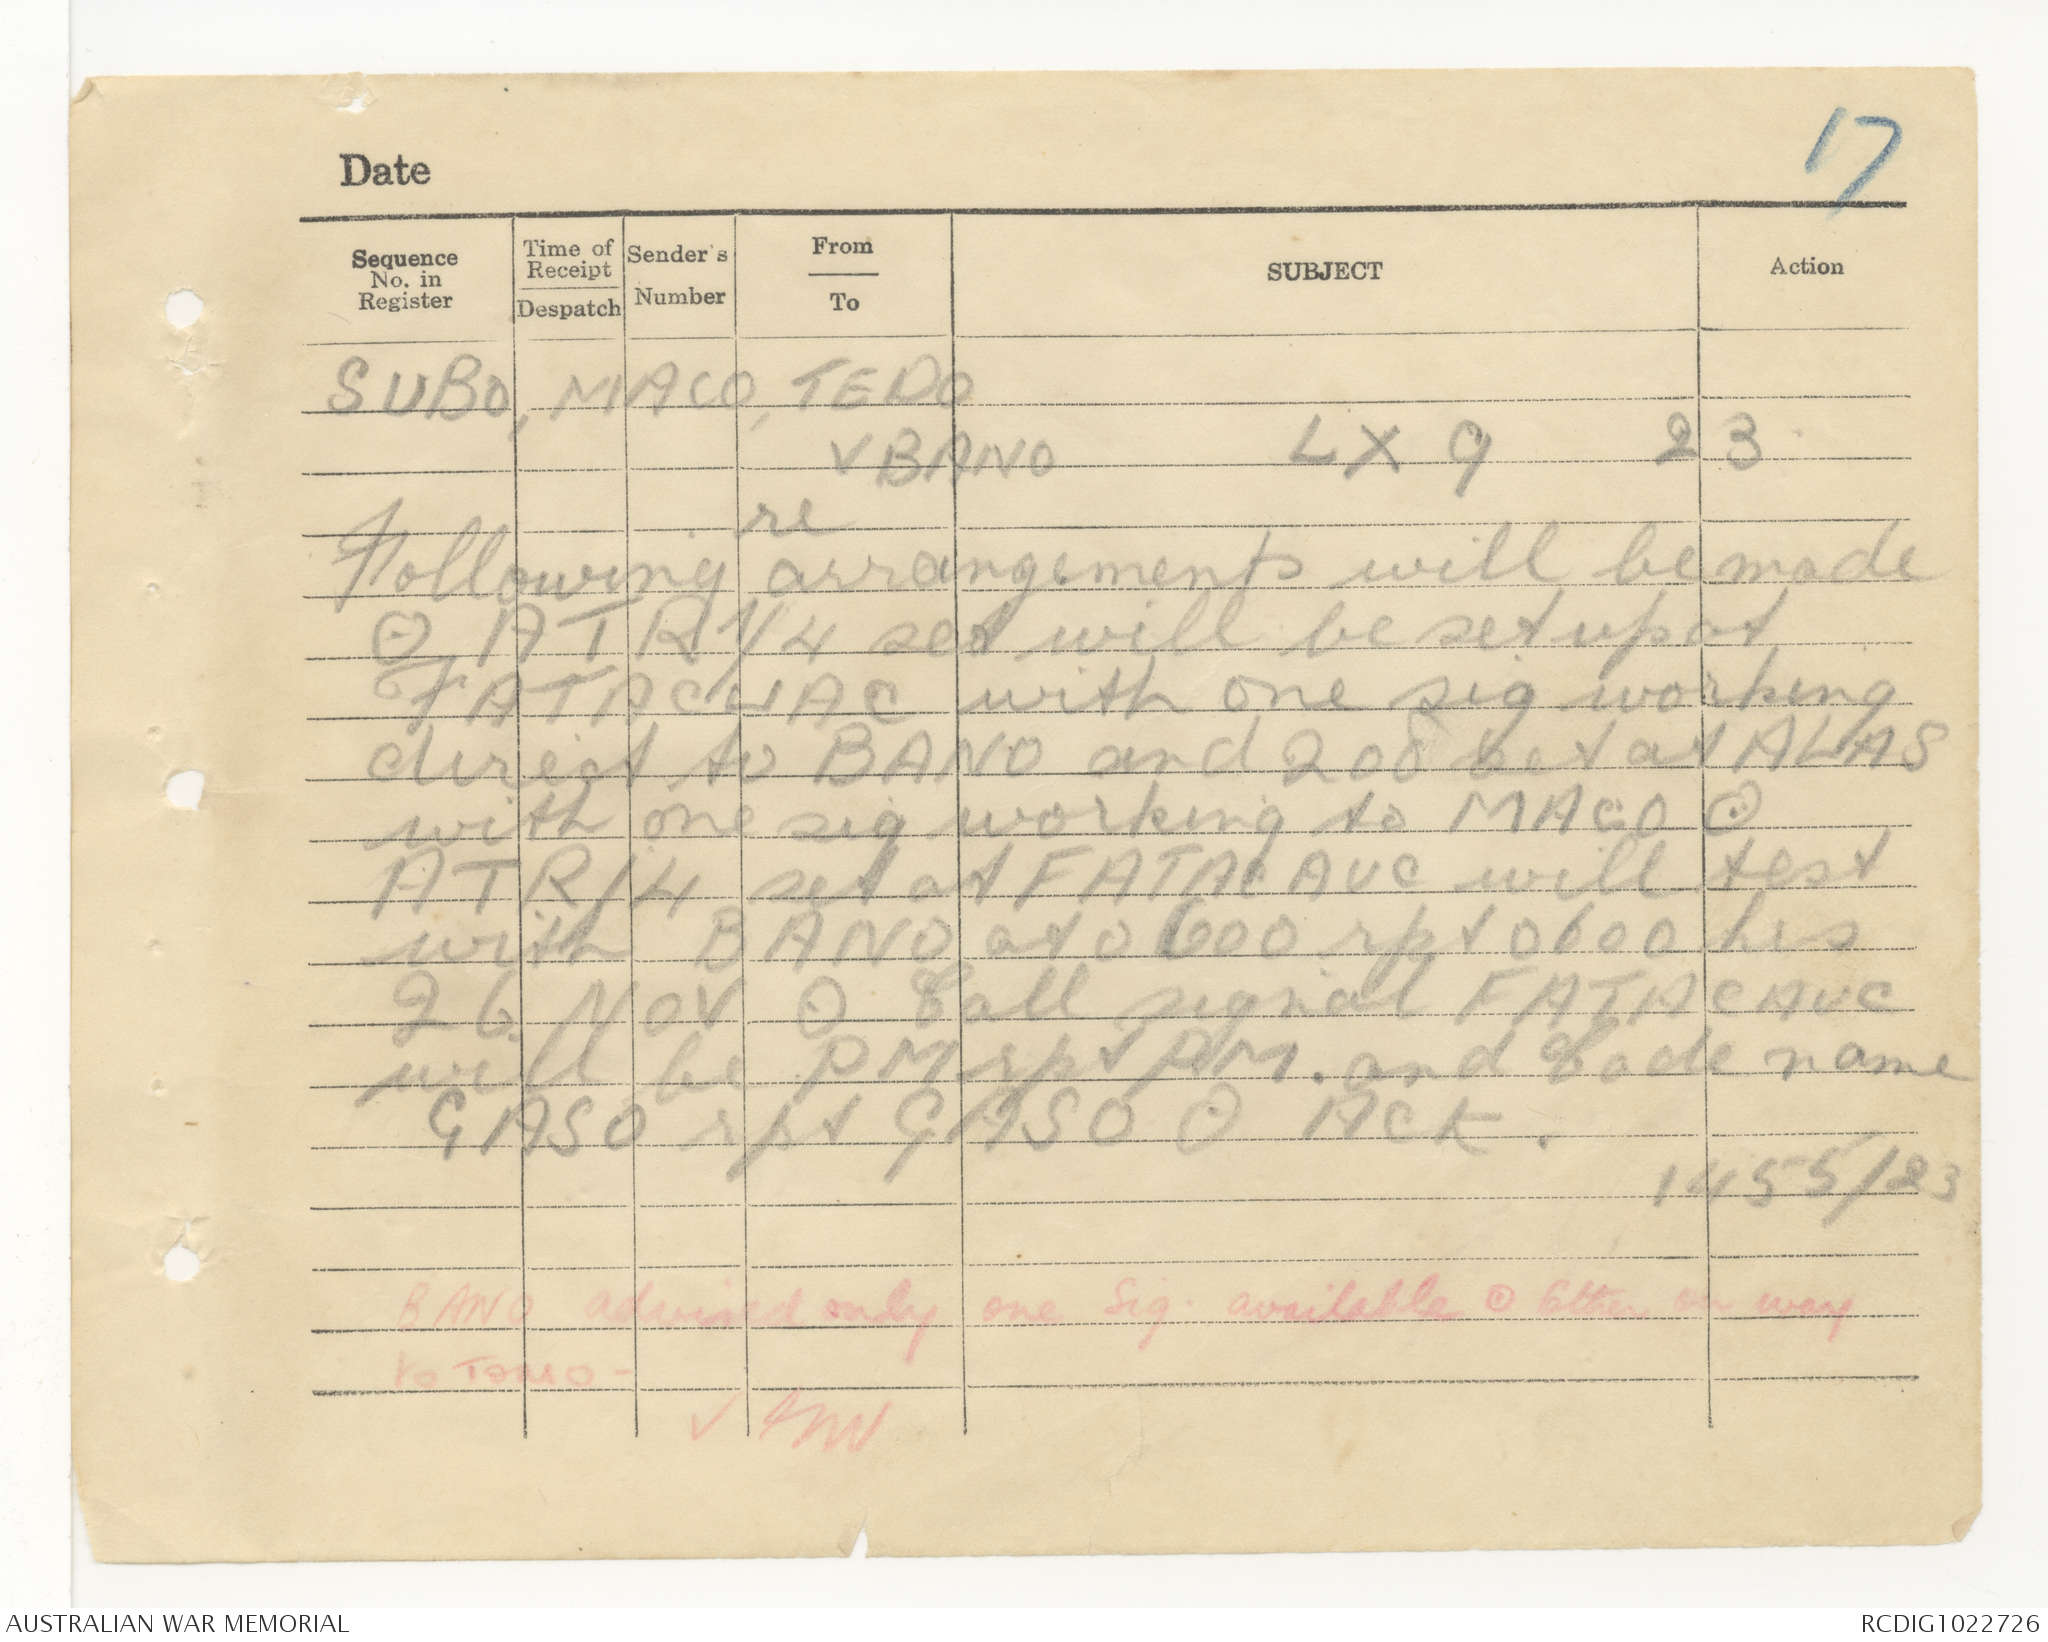 17
Date
Sequence
No. in
Register
Time of
Receipt
Despatch
Sender's
Number
From
To
SUBJECT
Action
SUBO, MACO, TEDO
V BANO LX 9 23
re
Following arrangements will be made
⊙ ATR 1/4 set will be set up at
with one sig working
direct to BANO and 208 set at ALAS
with one sig working to MACO ⊙
ATR/4 set at FATACAUC will test
with BANO at 0600 rpt 0600 hrs
26 NOV ⊙ Call signal FATACAUC
will be PM rpt PM. and Code name
GASO rpt GASO ⊙ ACK.
1455/23
BANO advised only one Sig. available ⊙ Other on way
to
✓
AUSTRALIAN WAR MEMORIAL
RCDIG1022726